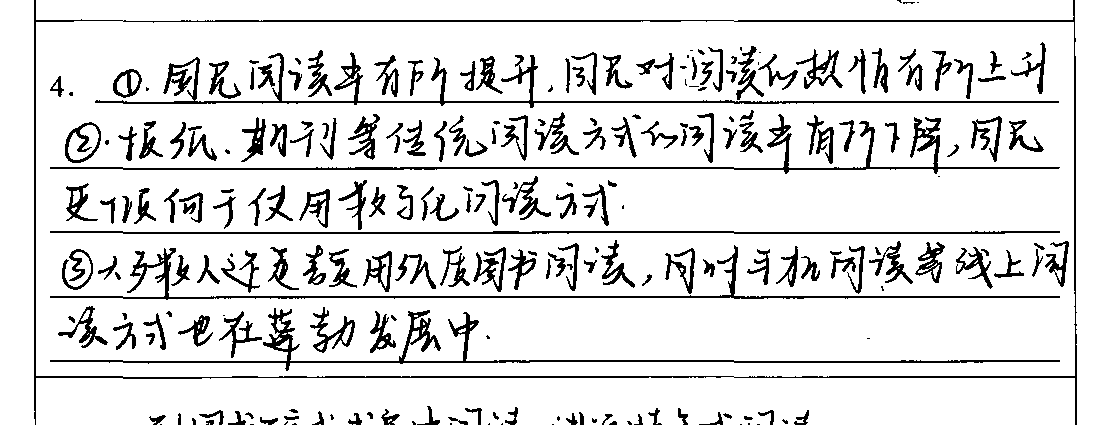 4. ①.国民阅读率有所提升,国民对阅读的热情有所上升
②.报纸、期刊等传统阅读方式的阅读率有所下降,国民
更倾向于使用数字化阅读方式.
③大多数人还是喜爱用纸质图书阅读,同时手机阅读等线上阅
读方式也在蓬勃发展中.